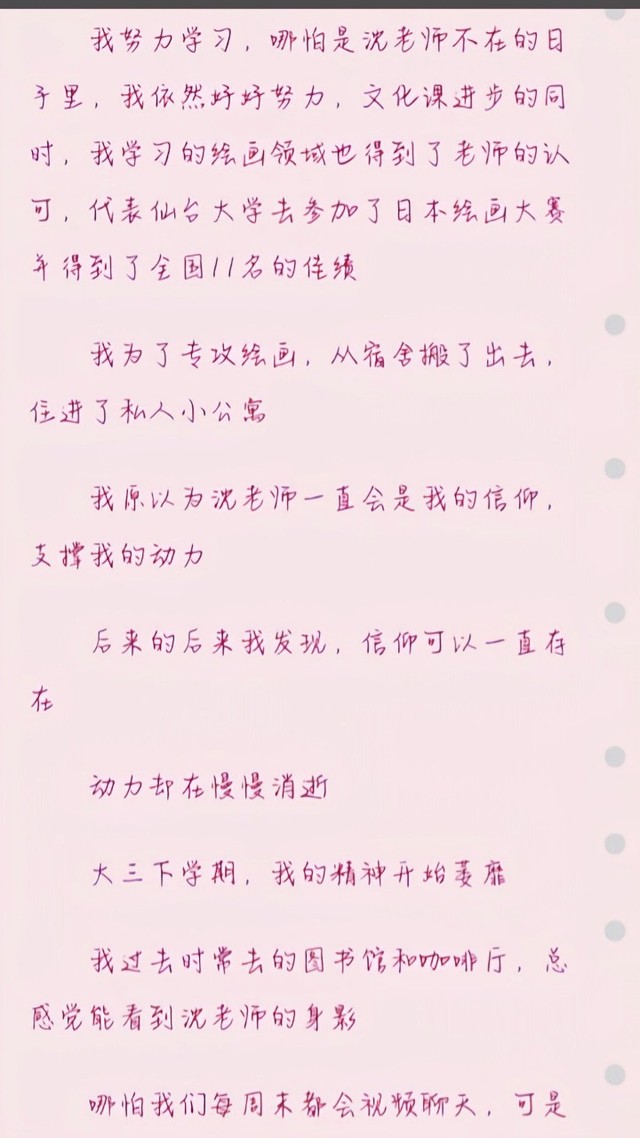 我努力学习，哪怕是沈老师不在的日
子里，我依然好好努力，文化课进步的同
时，我学习的绘画领域也得到了老师的认
可，代表仙台大学去参加了日本绘画大赛
并得到了全国11名的佳绩
我为了专攻绘画，从宿舍搬了出去，
住进了私人小公寓
我原以为沈老师一直会是我的信仰，
支撑我的动力
后来的后来我发现，信仰可以一直存
在
动力却在慢慢消逝
大三下学期，我的精神开始萎靡
我过去时常去的图书馆和咖啡厅，总
感觉能看到沈老师的身影
哪怕我们每周末都会视频聊天，可是